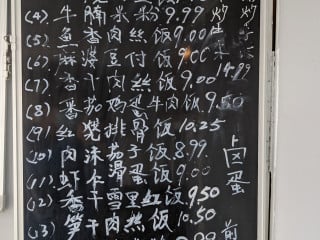 (4) 牛腩米粉 9.99 炒
(5) 鱼香肉丝饭 9.00
(6) 麻婆豆付饭 9.00
(7) 香干肉丝饭 9.00 14.99
(8) 番茄鸡蛋牛肉饭 9.50
(9) 红烧排骨饭 10.25
(10) 肉沫茄子饭 8.99
(11) 虾仁滑蛋饭 9.00
(12) 香干雪里红饭 9.50
(13) 笋干肉丝饭 10.50
卤蛋